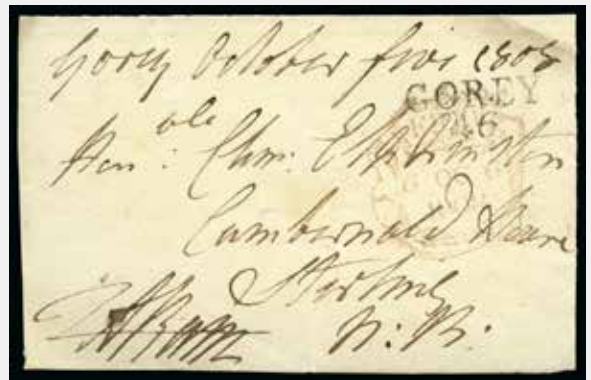 Gorey October five 1808
GOREY
46
Hon:ble Chm: Elphinston
Cumbernald House
Sterling
N:B: